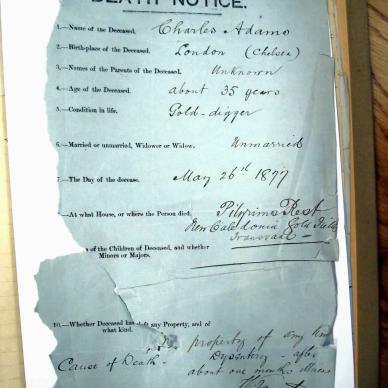 DEATH NOTICE.
1.—Name of the Deceased. Charles Adams
2.—Birth-place of the Deceased. London (Chelsea)
3.—Names of the Parents of the Deceased. Unknown
4.—Age of the Deceased. about 35 years
5.—Condition in life. Gold-digger
6.—Married or unmarried, Widower or Widow. Unmarried
7.—The Day of the decease. May 26th 1877
—At what House, or where the Person died, Pilgrims Rest
New Caledonia Gold Fields
Transvaal
of the Children of Deceased, and whether
Minors or Majors.
10.—Whether Deceased has left any Property, and of
what kind.
No property of any kind
Cause of Death - Dysentery - after
about one months illness